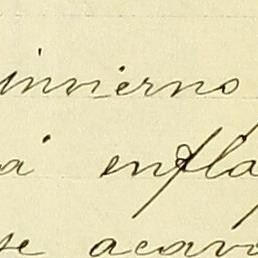 invierno
á enfla
se acava